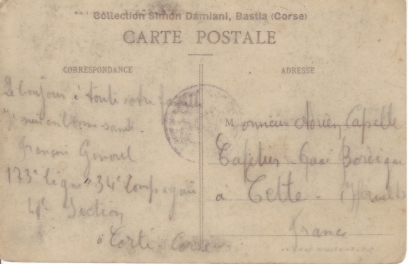 Collection Simon Damiani, Bastia (Corse)
CARTE POSTALE
CORRESPONDANCE
ADRESSE
Le bonjour à toute votre famille
Je suis en bonne santé.
François
173e ligne 34e Compagnie
4e Section
à Corte - Corse
Monsieur Capelle
Quai
à Cette - Hérault
France